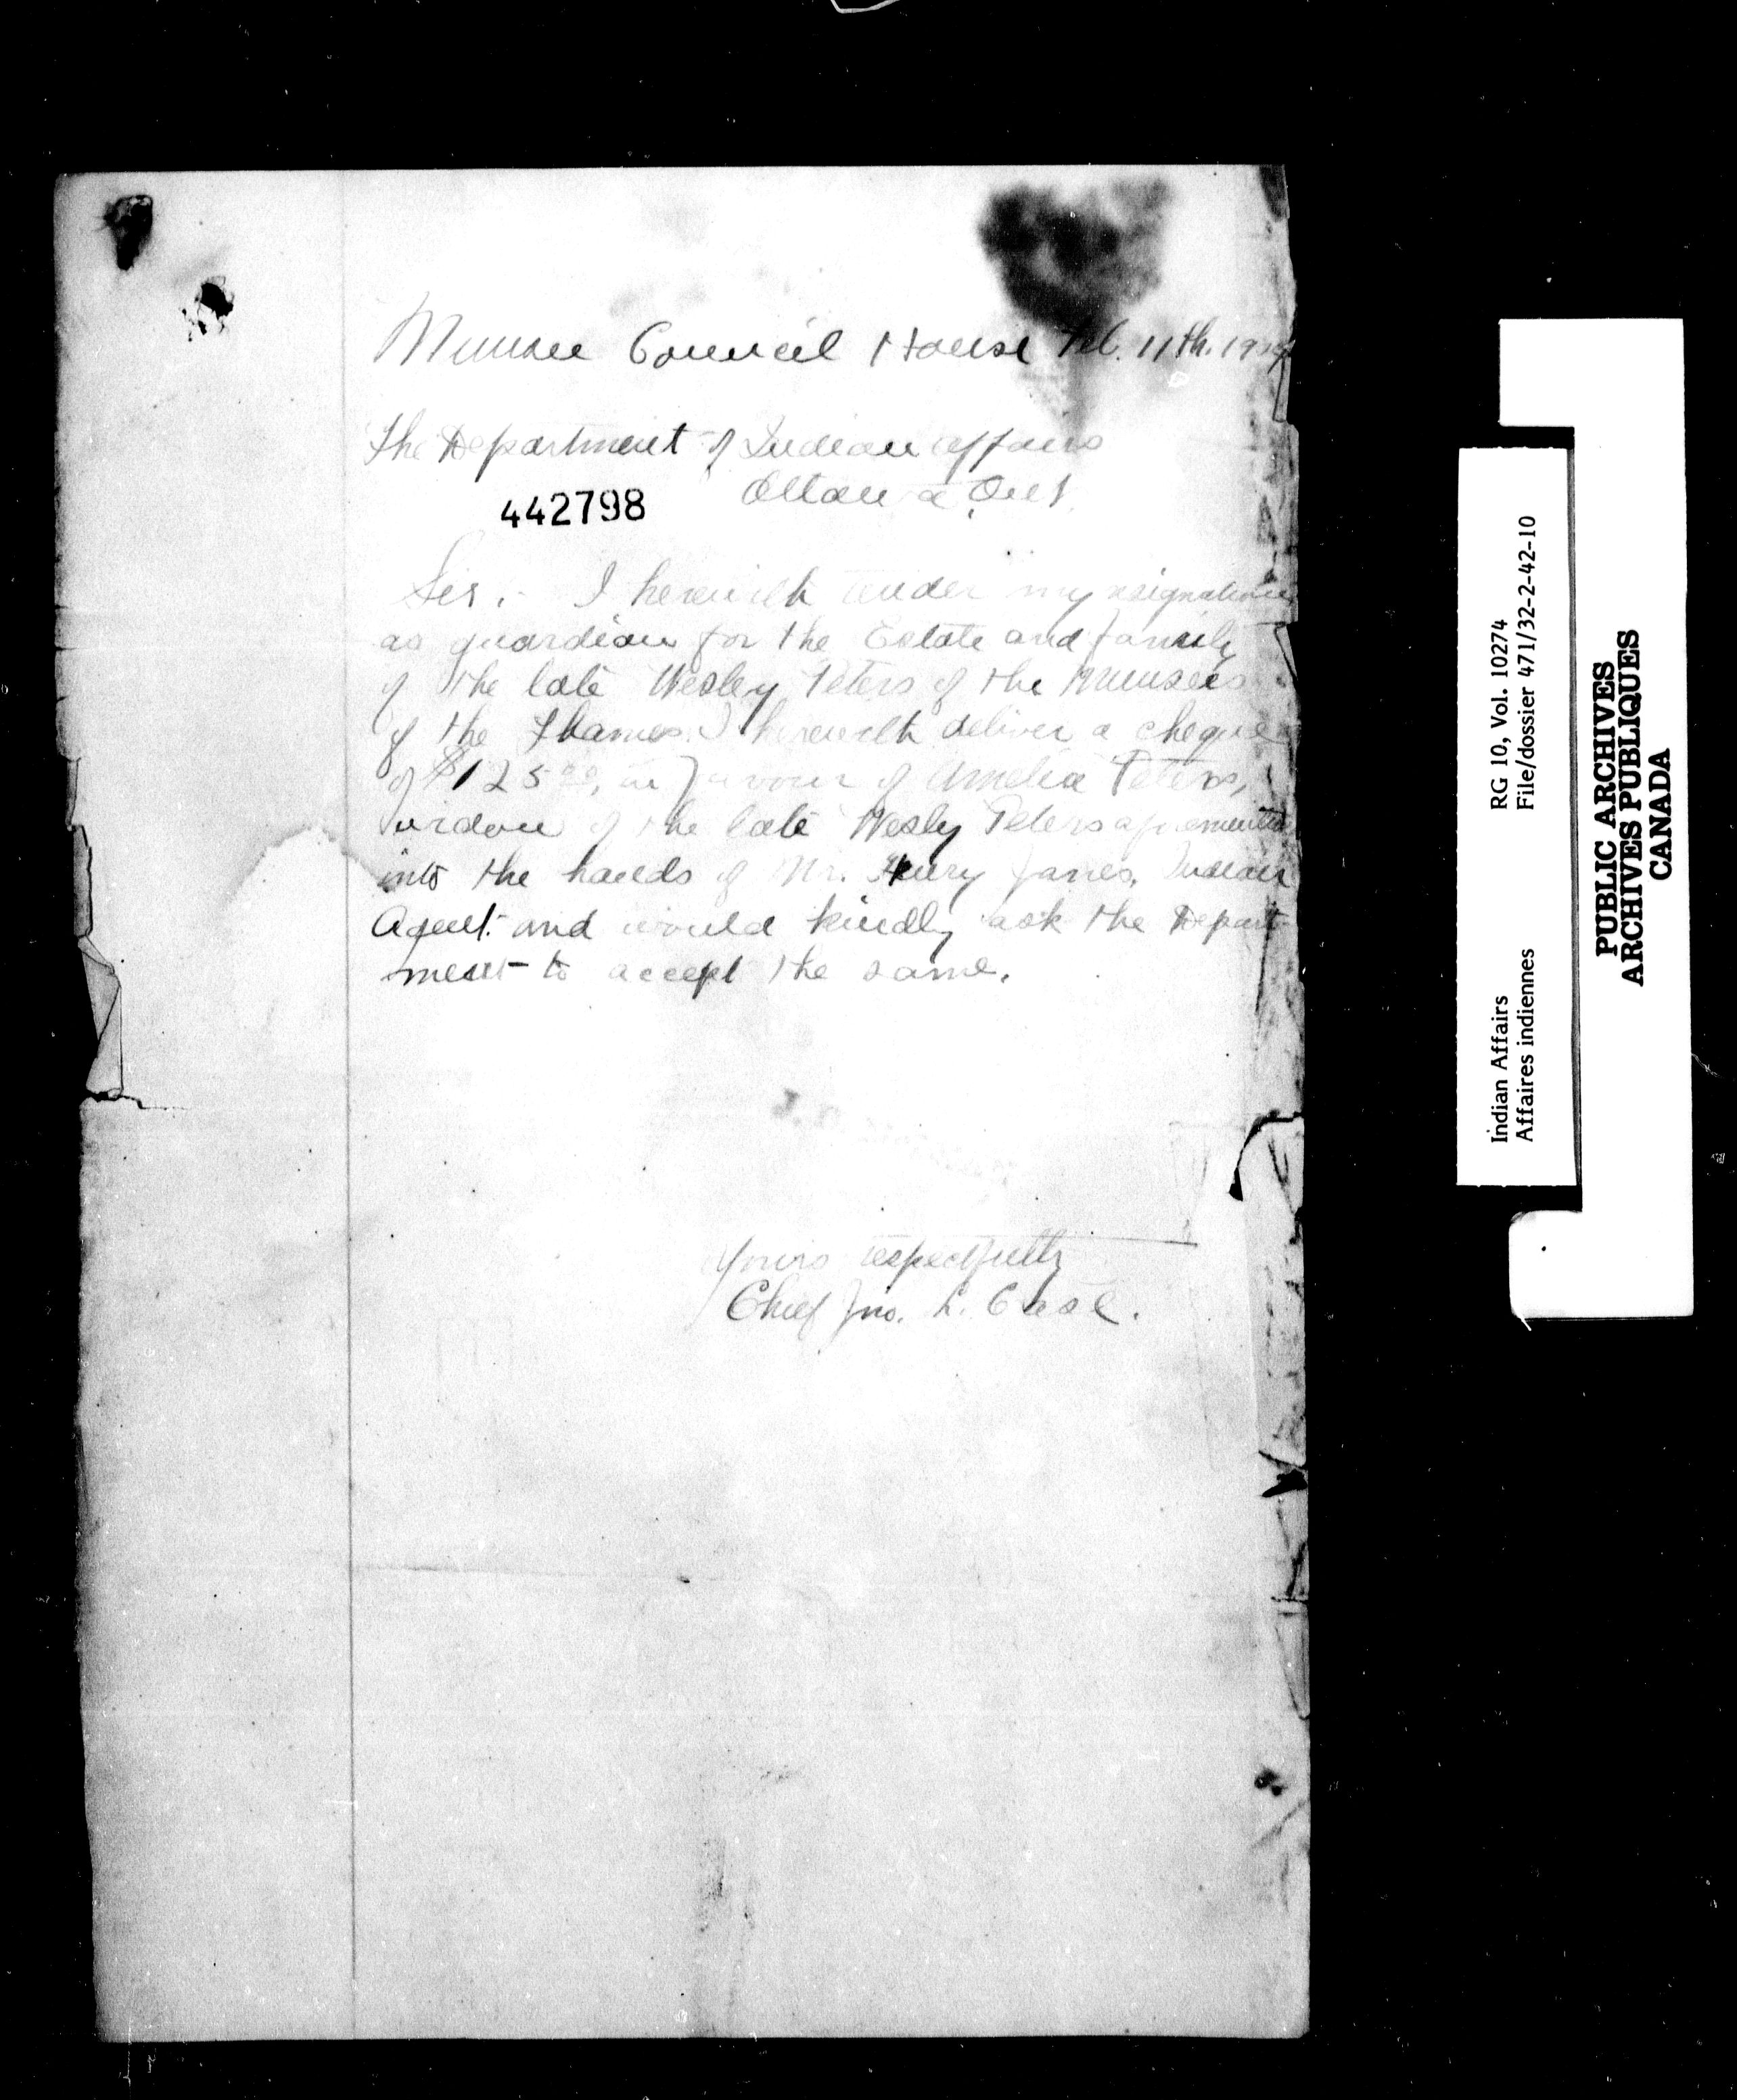 Munsee Council House Feb. 11th.
The Department of Indian affairs
Ottawa Ont.
442798
Sir,- I herewith tender my resignation
as guardian for the Estate and family
of the late Wesley Peters of the Munsees
of the Thames. I herewith deliver a cheque
of $125 00, in favour of Amelia Peters,
widow of the late Wesly Peters
into the hands of Mr. Henry Janes, Indian
Agent. and would kindly ask the Depart-
ment to accept the same.
Yours respectfully
Chief Jno. L. Case.
Indian Affairs RG 10, Vol. 10274
Affaires indiennes File/dossier 471/32-2-42-10
PUBLIC ARCHIVES
ARCHIVES PUBLIQUES
CANADA